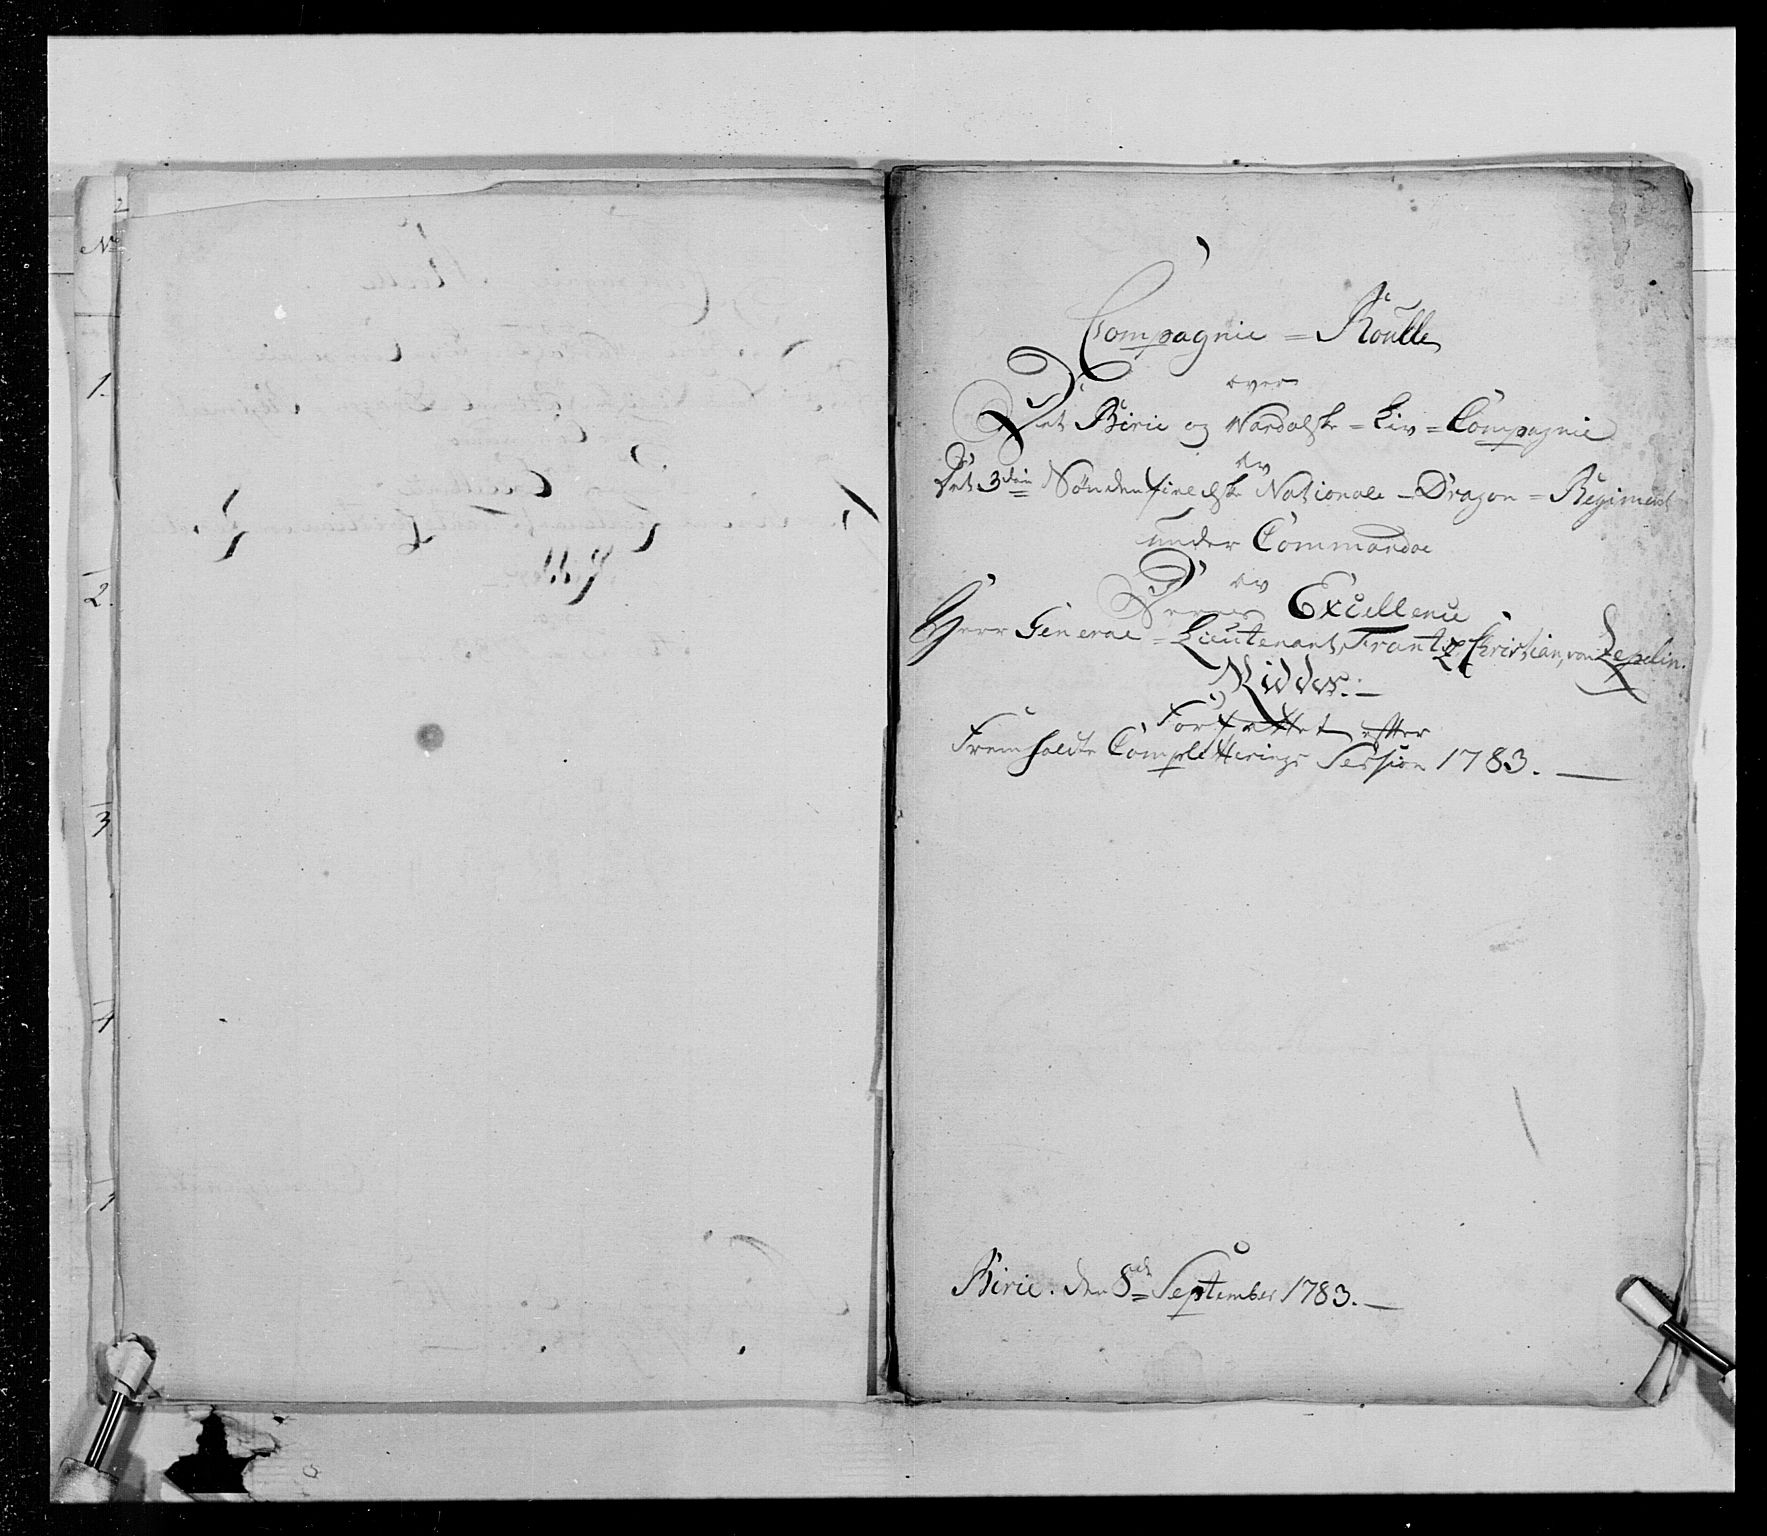 No
1.
2.
3.
4
Compagnie = Roulle
over
Det Birie og Vardalske = Liv = Compagnie
av
Det 3die Søndenfieldske Nationale = Dragon = Regiment
under Commandoe
av
Deres Excellence
Herr General = Lieutenant, Frantz Christian, von Zepelin.
Ridder. —
Forfattet efter
Fremholdte Completterings Session 1783. —
Birie. den 8de September 1783. —